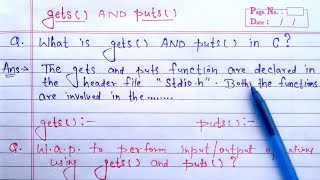 gets() AND puts()
Page No.:
Date: / /
Q. What is gets() AND puts() in C?
Ans→ The gets and puts function are declared in
the header file "Stdio.h". Both the functions
are involved in the........
gets():- puts():-
Q. W.a.p. to perform input/output operations
using gets() and puts()?